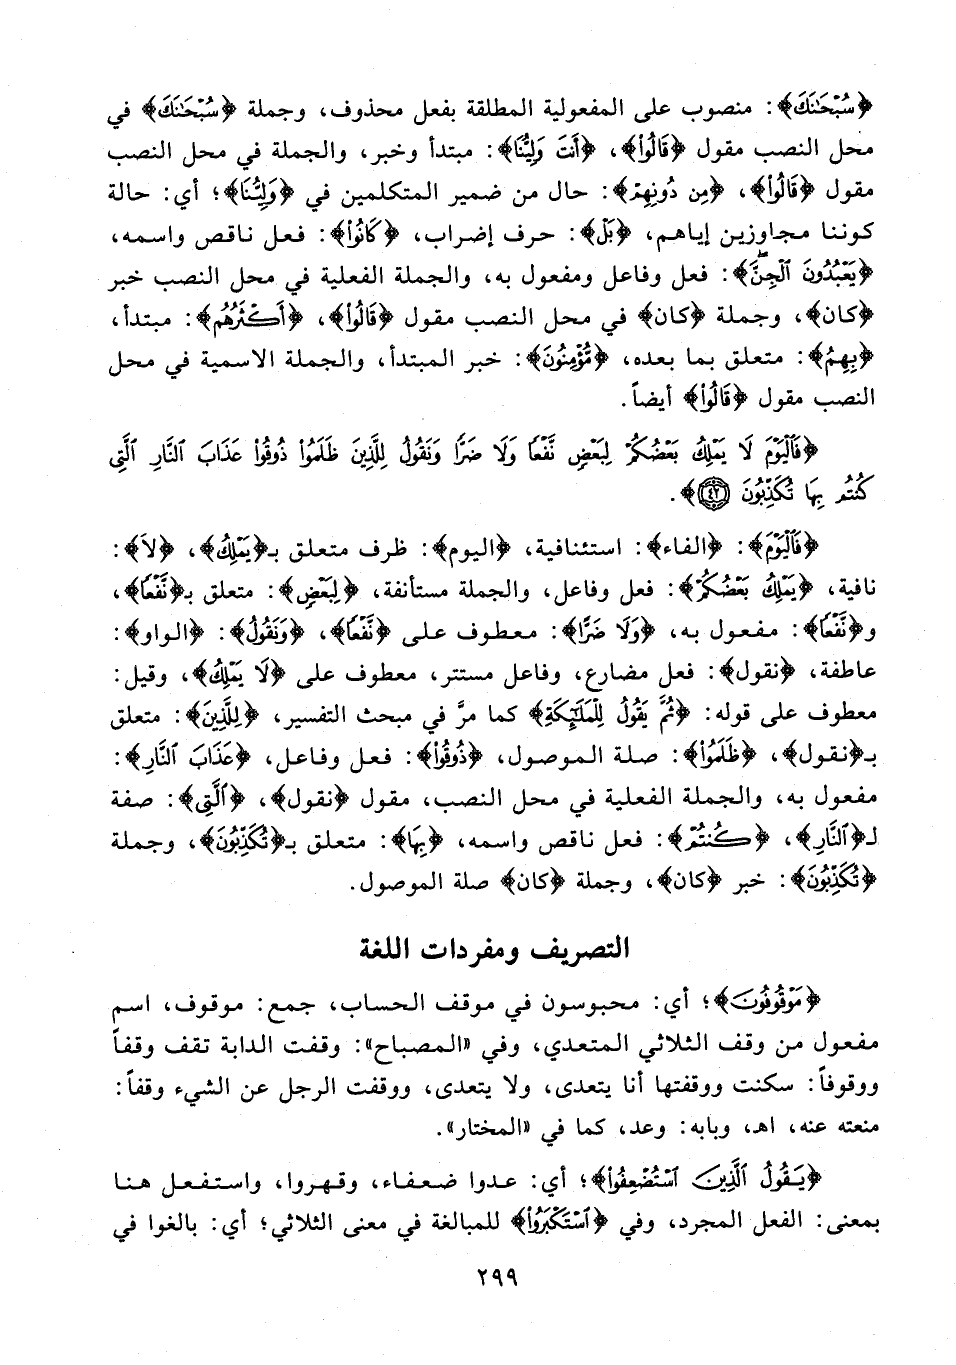 ﴿سُبْحَٰنَكَ﴾: منصوب على المفعولية المطلقة بفعل محذوف، وجملة ﴿سُبْحَٰنَكَ﴾ في
محل النصب مقول ﴿قَالُوا۟﴾، ﴿أَنتَ وَلِيُّنَا﴾: مبتدأ وخبر، والجملة في محل النصب
مقول ﴿قَالُوا۟﴾، ﴿مِن دُونِهِمْ﴾: حال من ضمير المتكلمين في ﴿وَلِيُّنَا﴾؛ أي: حالة
كوننا مجاوزين إياهم، ﴿بَلْ﴾: حرف إضراب، ﴿كَانُوا۟﴾: فعل ناقص واسمه،
﴿يَعْبُدُونَ ٱلْجِنَّ ۖ﴾: فعل وفاعل ومفعول به، والجملة الفعلية في محل النصب خبر
﴿كان﴾، وجملة ﴿كان﴾ في محل النصب مقول ﴿قَالُوا۟﴾، ﴿أَكْثَرُهُم﴾: مبتدأ،
﴿بِهِمْ﴾: متعلق بما بعده، ﴿مُّؤْمِنُونَ﴾: خبر المبتدأ، والجملة الاسمية في محل
النصب مقول ﴿قَالُوا۟﴾ أيضاً.
﴿فَٱلْيَوْمَ لَا يَمْلِكُ بَعْضُكُمْ لِبَعْضٍ نَّفْعًا وَلَا ضَرًّا وَنَقُولُ لِلَّذِينَ ظَلَمُوا۟ ذُوقُوا۟ عَذَابَ ٱلنَّارِ ٱلَّتِى
كُنتُم بِهَا تُكَذِّبُونَ ٤٢﴾.
﴿فَٱلْيَوْمَ﴾: ﴿الفاء﴾: استئنافية، ﴿اليوم﴾: ظرف متعلق بـ﴿يَمْلِكُ﴾، ﴿لَا﴾:
نافية، ﴿يَمْلِكُ بَعْضُكُمْ﴾: فعل وفاعل، والجملة مستأنفة، ﴿لِبَعْضٍ﴾: متعلق بـ﴿نَّفْعًا﴾،
و﴿نَّفْعًا﴾: مفعول به، ﴿وَلَا ضَرًّا﴾: معطوف على ﴿نَّفْعًا﴾، ﴿وَنَقُولُ﴾: ﴿الواو﴾:
عاطفة، ﴿نقول﴾: فعل مضارع، وفاعل مستتر، معطوف على ﴿لَا يَمْلِكُ﴾، وقيل:
معطوف على قوله: ﴿ثُمَّ يَقُولُ لِلْمَلَٰٓئِكَةِ﴾ كما مرَّ في مبحث التفسير، ﴿لِلَّذِينَ﴾: متعلق
بـ﴿نقول﴾، ﴿ظَلَمُوا۟﴾: صلة الموصول، ﴿ذُوقُوا۟﴾: فعل وفاعل، ﴿عَذَابَ ٱلنَّارِ﴾:
مفعول به، والجملة الفعلية في محل النصب، مقول ﴿نقول﴾، ﴿ٱلَّتِى﴾: صفة
لـ﴿ٱلنَّارِ﴾، ﴿كُنتُمْ﴾: فعل ناقص واسمه، ﴿بِهَا﴾: متعلق بـ﴿تُكَذِّبُونَ﴾، وجملة
﴿تُكَذِّبُونَ﴾: خبر ﴿كان﴾، وجملة ﴿كان﴾ صلة الموصول.
التصريف ومفردات اللغة
﴿مَوْقُوفُونَ﴾؛ أي: محبوسون في موقف الحساب، جمع: موقوف، اسم
مفعول من وقف الثلاثي المتعدي، وفي «المصباح»: وقفت الدابة تقف وقفاً
ووقوفاً: سكنت ووقفتها أنا يتعدى، ولا يتعدى، ووقفت الرجل عن الشيء وقفاً:
منعته عنه، اهـ، وبابه: وعد، كما في «المختار».
﴿يَقُولُ ٱلَّذِينَ ٱسْتُضْعِفُوا۟﴾؛ أي: عدوا ضعفاء، وقهروا، واستفعل هنا
بمعنى: الفعل المجرد، وفي ﴿ٱسْتَكْبَرُوا۟﴾ للمبالغة في معنى الثلاثي؛ أي: بالغوا في
٢٩٩